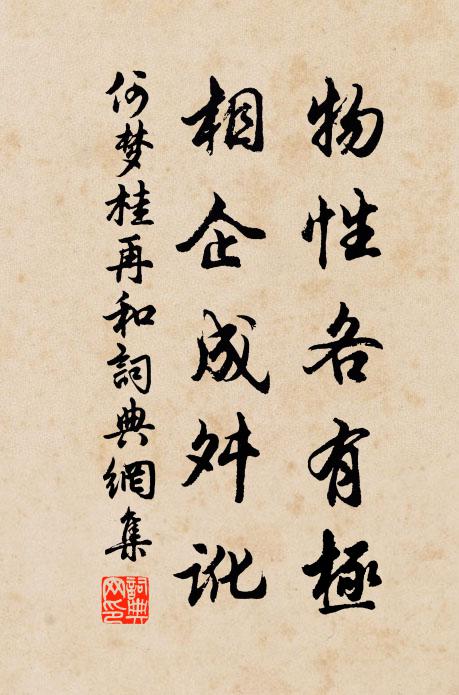 物性各有極
相企成舛訛
何梦桂再和詞典網集
詞典
网印